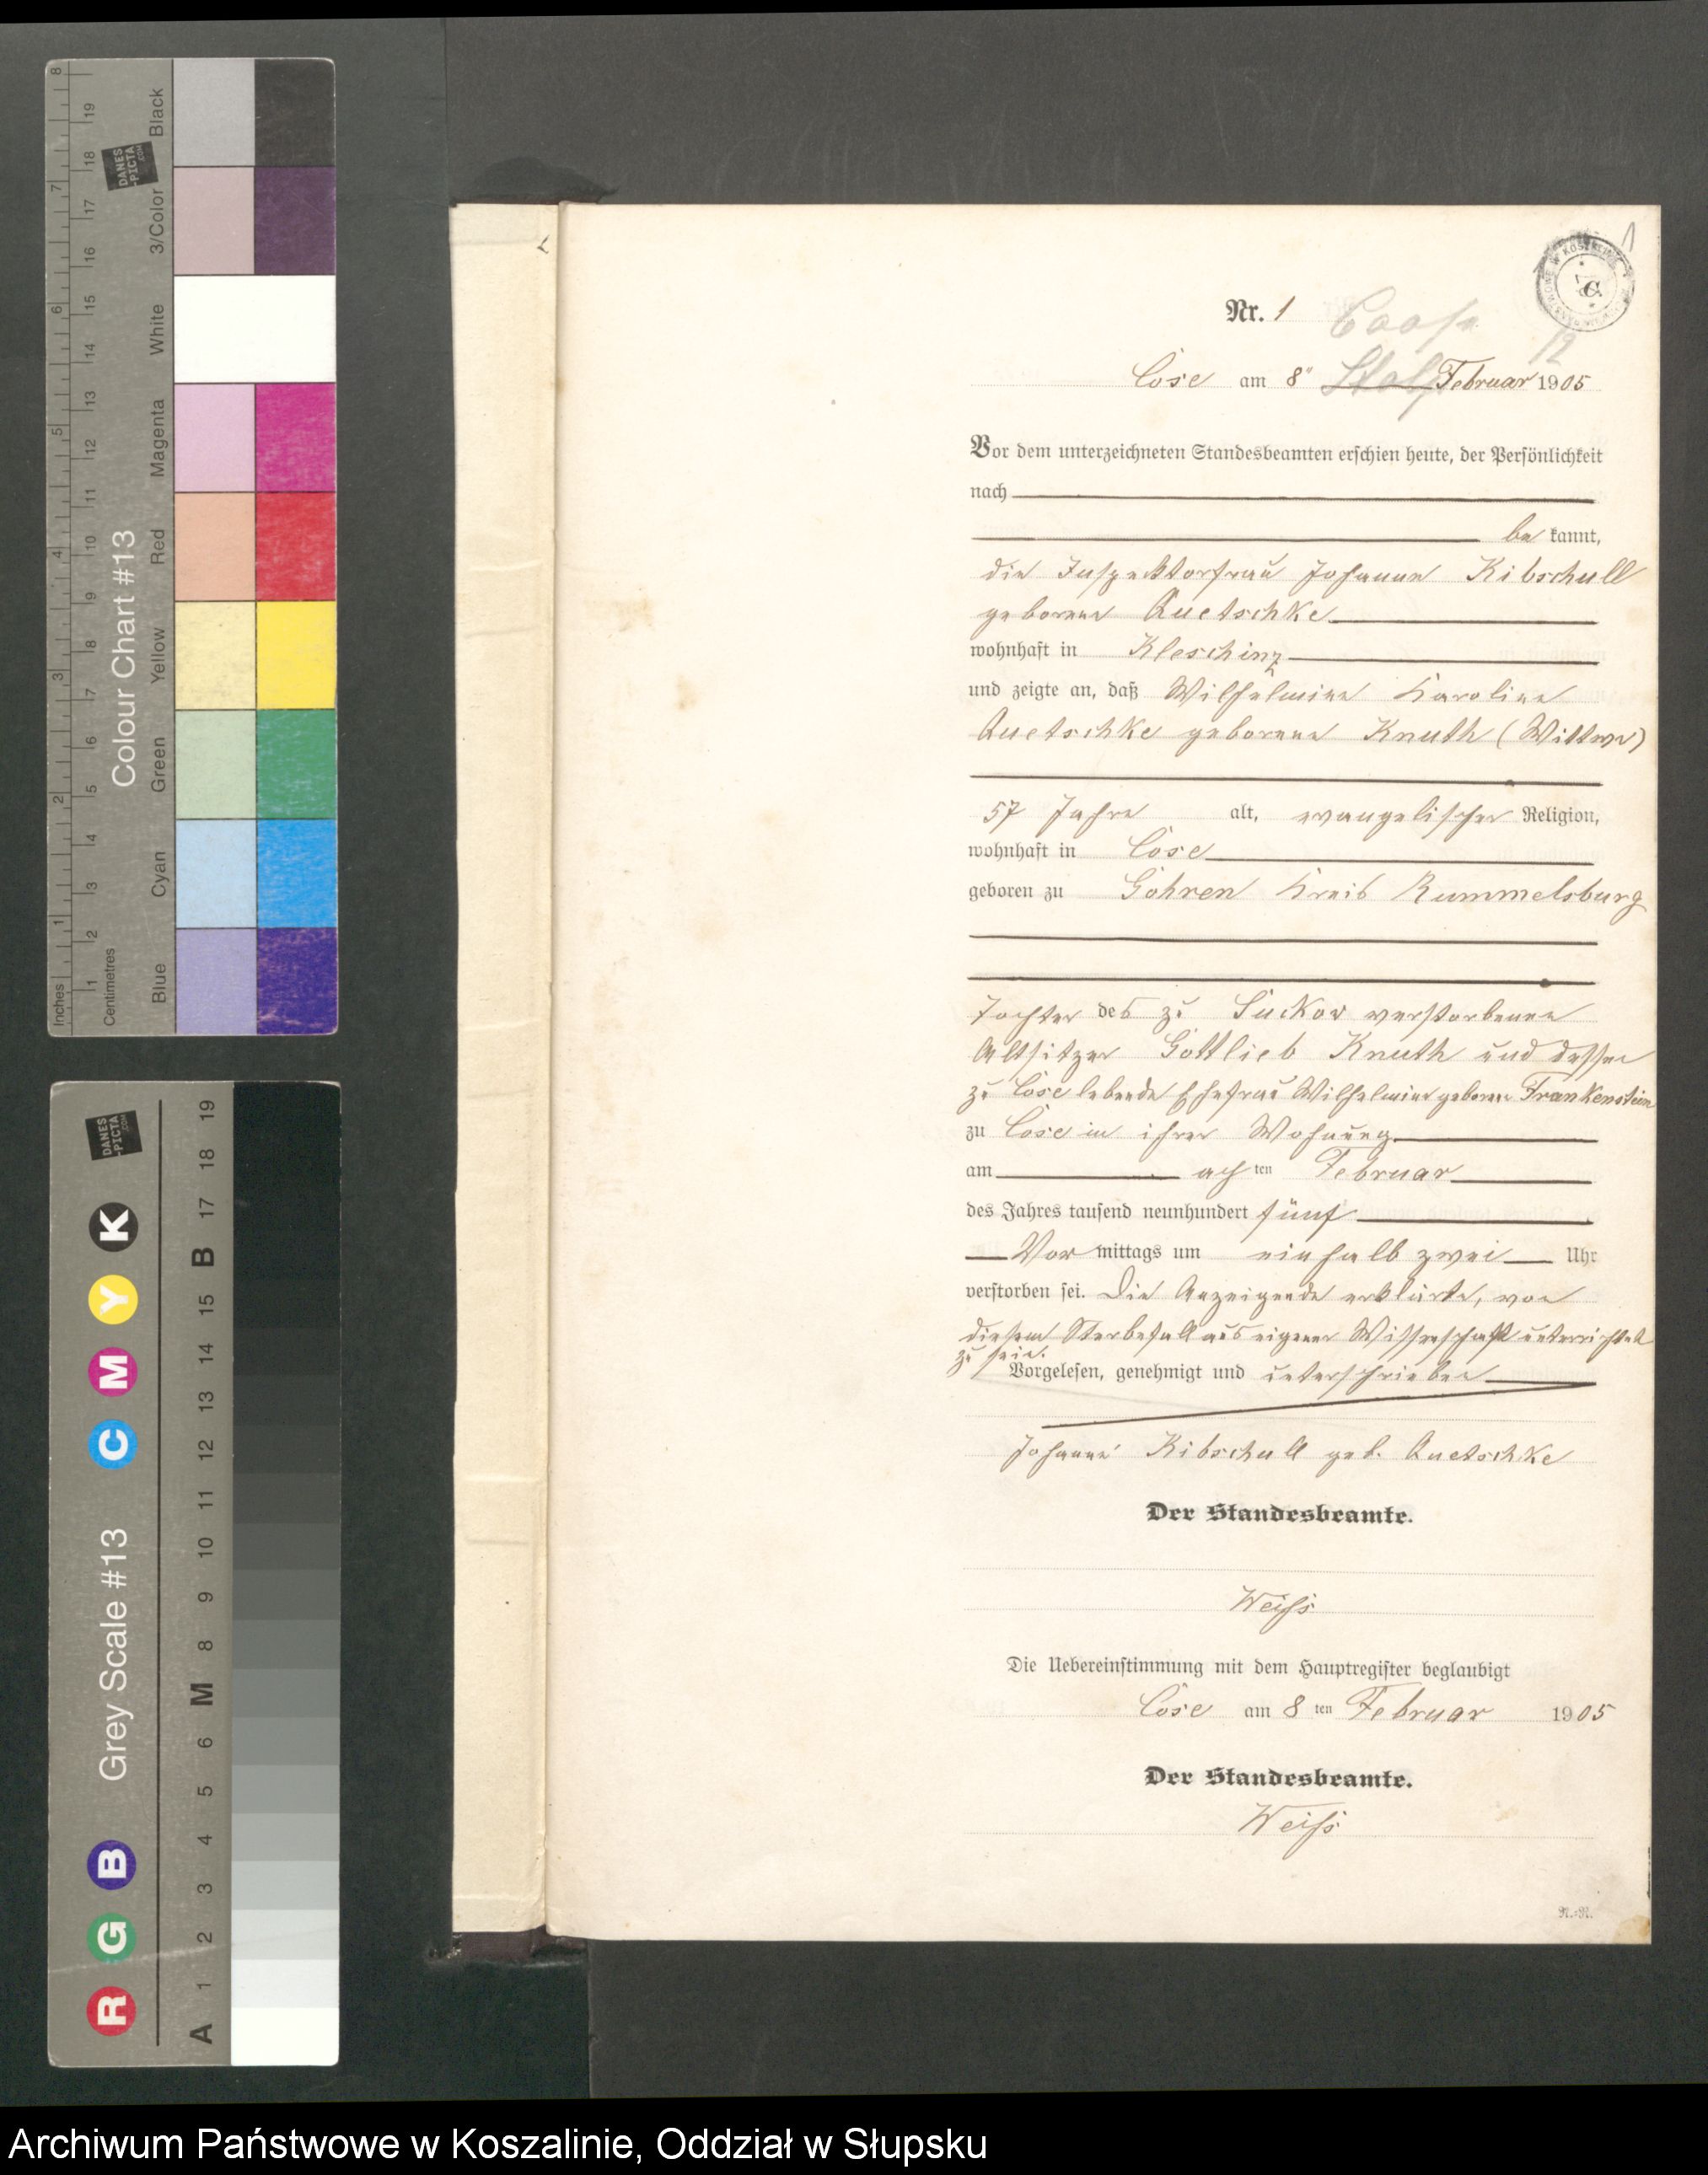 Nr. 1
Cose am 8ten Februar 1905
Vor dem unterzeichneten Standesbeamten erschien heute, der Persönlichkeit
nach
be kannt,
die Inspektorfrau Johanne Kibschull
geborene Quetschke
wohnhaft in Kleschinz
und zeigte an, daß Wilhelmine Karoline
Quetschke geborene Knuth (Wittwe)
57 Jahre alt, evangelischer Religion,
wohnhaft in Cose
geboren zu Gohren Kreis Rummelsburg
Tochter des zu Suckow verstorbenen
Altsitzer Gottlieb Knuth und dessen
zu Cose lebende Ehefrau Wilhelmine geborene Frankenstein
zu Cose in ihrer Wohnung
am achten Februar
des Jahres tausend neunhundert fünf
Vor mittags um einhalb zwei Uhr
verstorben sei. Die Anzeigende erklärte, von
diesem Sterbefall aus eigener Wissenschaft unterrichtet
zu sein.
Vorgelesen, genehmigt und unterschrieben
Johanne Kibschull geb. Quetschke
Der Standesbeamte.
Weiß
Die Uebereinstimmung mit dem Hauptregister beglaubigt
Cose am 8 ten Februar 1905
Der Standesbeamte.
Weiß
Colour Chart #13
Inches
Centimetres
Blue Cyan Green Yellow Red Magenta White 3/Color Black
DANES-PICTA.COM
Grey Scale #13
R G B C M Y K
A 1 2 3 4 5 6 M 8 9 10 11 12 13 14 15 B 17 18 19
Archiwum Państwowe w Koszalinie, Oddział w Słupsku